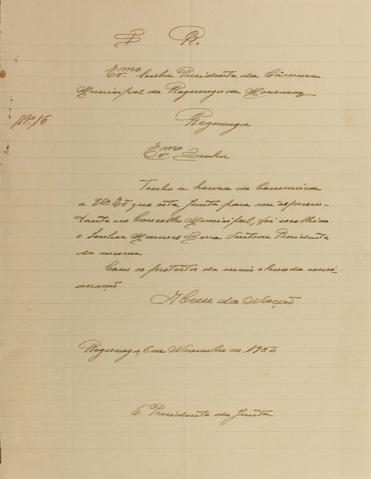 S R.
Exmo. Senhor Presidente da Câmara
Municipal de Reguengos de Monsaraz
Nº 16
Reguengos
Exmo. Senhor
Tenho a honra de comunicar
a V. Exª que esta Junta para um represen-
tante no Concelho Municipal, foi escolhido
o Senhor Marcos Presidente
da mesma
Com os protestos da mais elevada consi-
deração
A Bem da Nação
Reguengos, 6 de Novembro de 1950
O Presidente da Junta